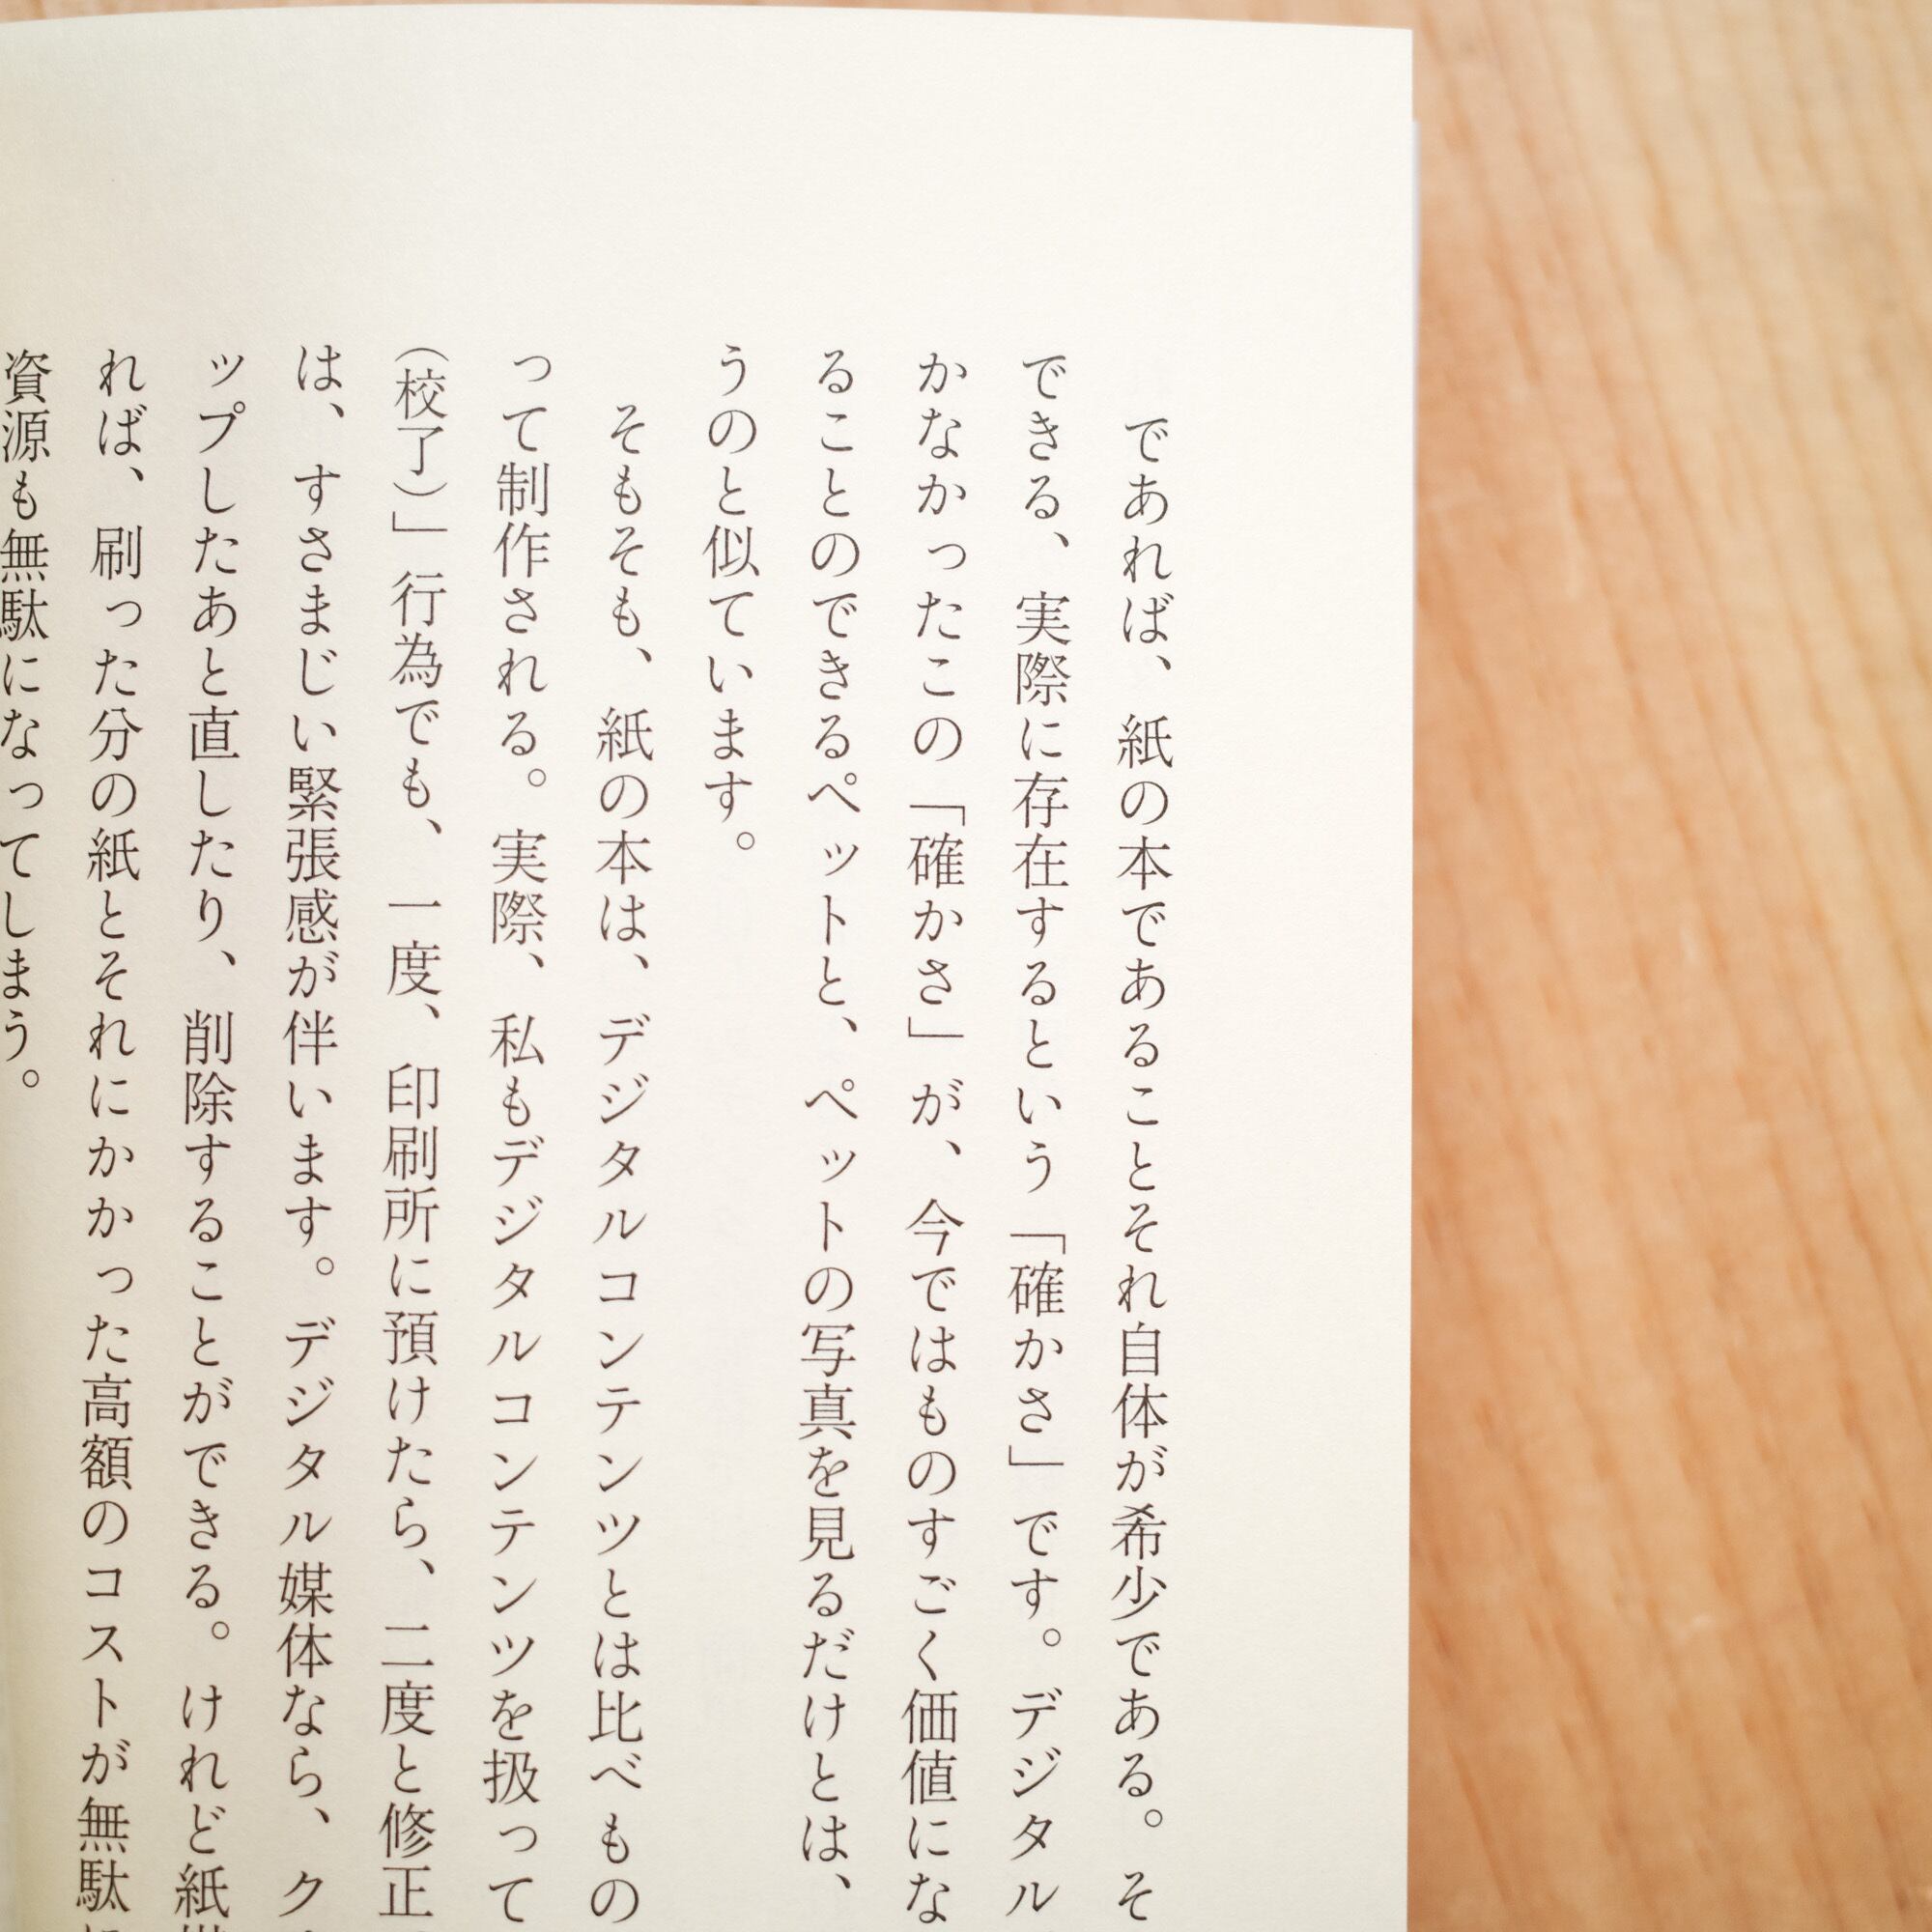 であれば、紙の本であることそれ自体が希少である。そ
できる、実際に存在するという「確かさ」です。デジタル
かなかったこの「確かさ」が、今ではものすごく価値にな
ることのできるペットと、ペットの写真を見るだけとは、
うのと似ています。
そもそも、紙の本は、デジタルコンテンツとは比べもの
って制作される。実際、私もデジタルコンテンツを扱って
（校了）」行為でも、一度、印刷所に預けたら、二度と修正
は、すさまじい緊張感が伴います。デジタル媒体なら、ク
ップしたあと直したり、削除することができる。けれど紙
れば、刷った分の紙とそれにかかった高額のコストが無駄
資源も無駄になってしまう。